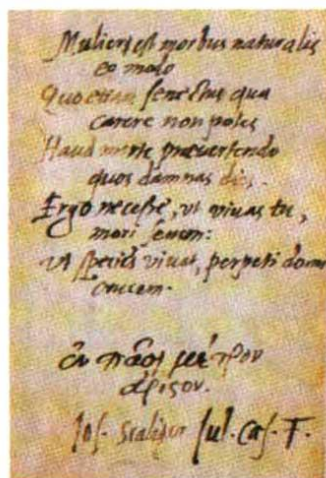 Mulier est morbus naturalis
eo modo
Quo etiam senectus qua
carere non potes
Haud morte praevertendo
quos damnas dies.
Ergo necesse, ut vivas tu,
mori senem:
Ut species vivat, perpeti domi
crucem.
ἐν πᾶσι μέτρον
ἄριστον.
Jos. Scaliger Jul. Caes. F.